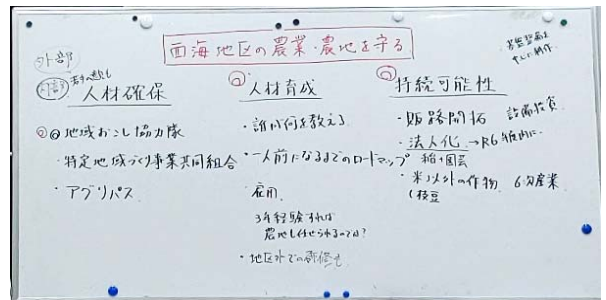 西海地区の農業・農地を守る
外部
人材確保
地域おこし協力隊
・特定地域づくり事業共同組合
・アグリパス
人材育成
・誰が何を教える
・一人前になるまでのロードマップ
・雇用
3年経験すれば
農地も任せられるのでは?
・地区外での研修も
持続可能性
・販路開拓 設備投資
・法人化→R6年度内に
稲+園芸
・米以外の作物 6次産業
(枝豆